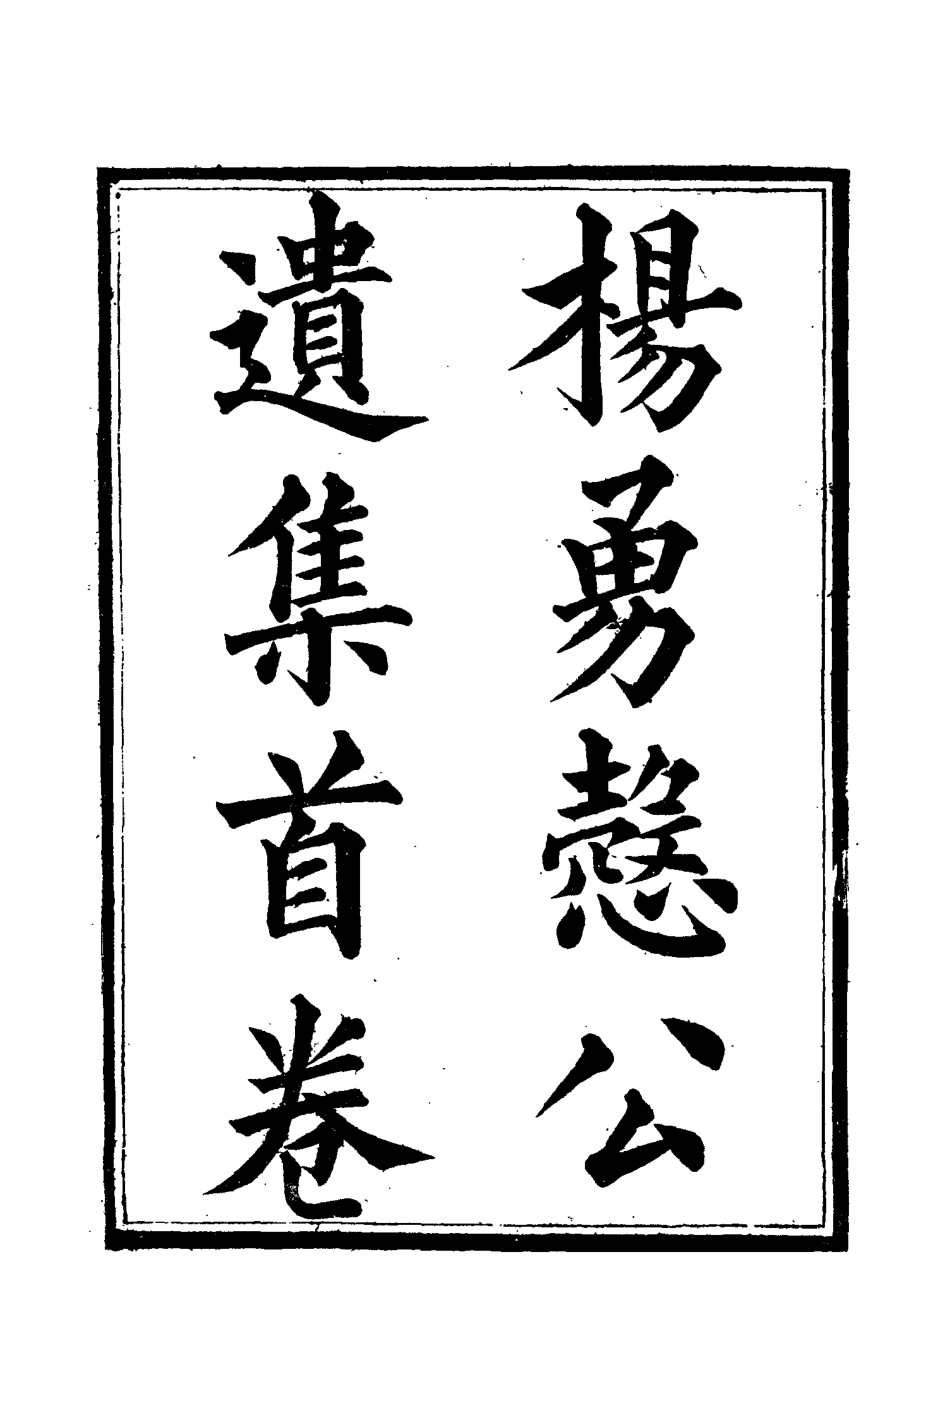 楊勇慤公
遺集首卷